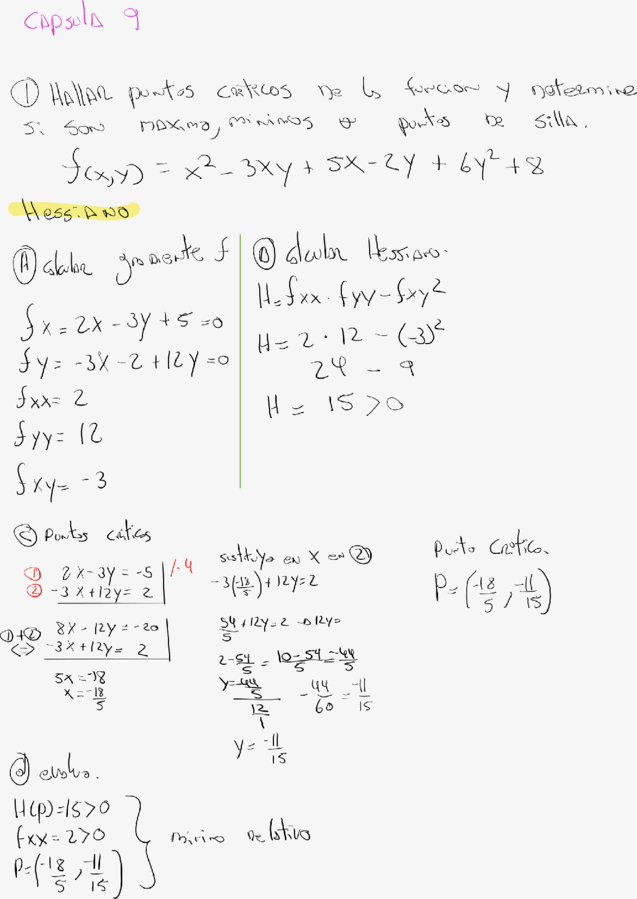 CAPSULA 9
① HALLAR puntos CRITICOS DE la funcion y Determine
si son maximo, minimos o puntos DE Silla.
f(x,y) = x² - 3xy + 5x - 2y + 6y² + 8
HESSIANO
Ⓐ calcular gradiente f
fx = 2x - 3y + 5 = 0
fy = -3x - 2 + 12y = 0
fxx = 2
fyy = 12
fxy = -3
calcular Hessiano.
H = fxx · fyy - fxy²
H = 2 · 12 - (-3)²
24 - 9
H = 15 > 0
ⓒ Puntos criticos
① 2x - 3y = -5 /·4
② -3x + 12y = 2
①+② 8x - 12y = -20
<=> -3x + 12y = 2
5x = -18
x = -18/5
sustituyo en x en ②
-3(-18/5) + 12y = 2
54/5 + 12y = 2 → 12y =
2 - 54/5 = 10-54/5 = -44/5
y = -44/5 / 12/1
-44/60 = -11/15
y = -11/15
Punto Critico.
P = (-18/5, -11/15)
ⓓ evaluo.
H(p) = 15 > 0
fxx = 2 > 0
P = (-18/5, -11/15)
minimo Relativo